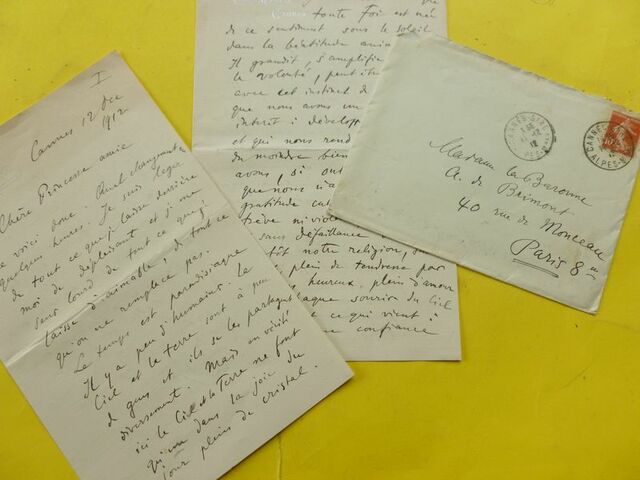 I
Cannes 12 Dec
1912
Chère Princesse amie
me voici donc. Quel changement en
quelques heures. Je suis léger
de tout ce que je laisse derrière
moi de déplaisant et je me
sens lourd de tout ce que j'y
laisse d'aimable, de tout ce
qu'on ne remplace pas.
Le temps est paradisiaque
Il y a peu d'humains. Le
Ciel et la terre sont à peu
de gens et ils se les partagent
diversement. Mais en vérité
ici le Ciel et la Terre ne font
qu'un dans la joie du
jour plein de cristal.
toute Foi est née
de ce sentiment sous le soleil
dans la béatitude
Il grandit, s'amplifie
la volonté, peut être
avec cet instinct de
que nous avons un
interêt à
et qui nous rend
du moindre bien
avons, si
que nous n'a
gratitude
trêve ni
sans défaillance
tôt notre religion,
plein de tendresse par
heureux, plein d'amour
chaque sourire du Ciel
ce qui vient à
confiance
CANNES
12
CANNES
ALPES-M
10
Madame la Baronne
A. de Brimont
40 rue de Monceau
Paris 8e